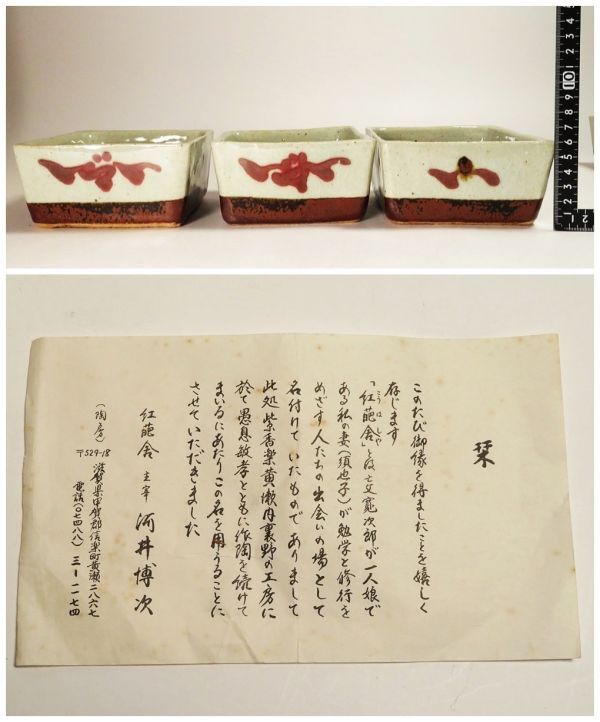 栞
このたび御縁を得ましたことを嬉しく
存じます
「紅葩舎」とは亡父寛次郎が一人娘で
こうはしゃ
ある私の妻(須也子)が勉学と修行を
めざす人たちの出会いの場として
名付けていたものでありまして
此処紫香楽黄瀬内裏野の工房に
於て愚息敏孝とともに作陶を続けて
まいるにあたりこの名を用うることに
させていただきました
紅葩舎 主宰 河井博次
(陶房)
〒529-18
滋賀県甲賀郡信楽町黄瀬二八六七
電話(〇七四八八)三-一一七四
10